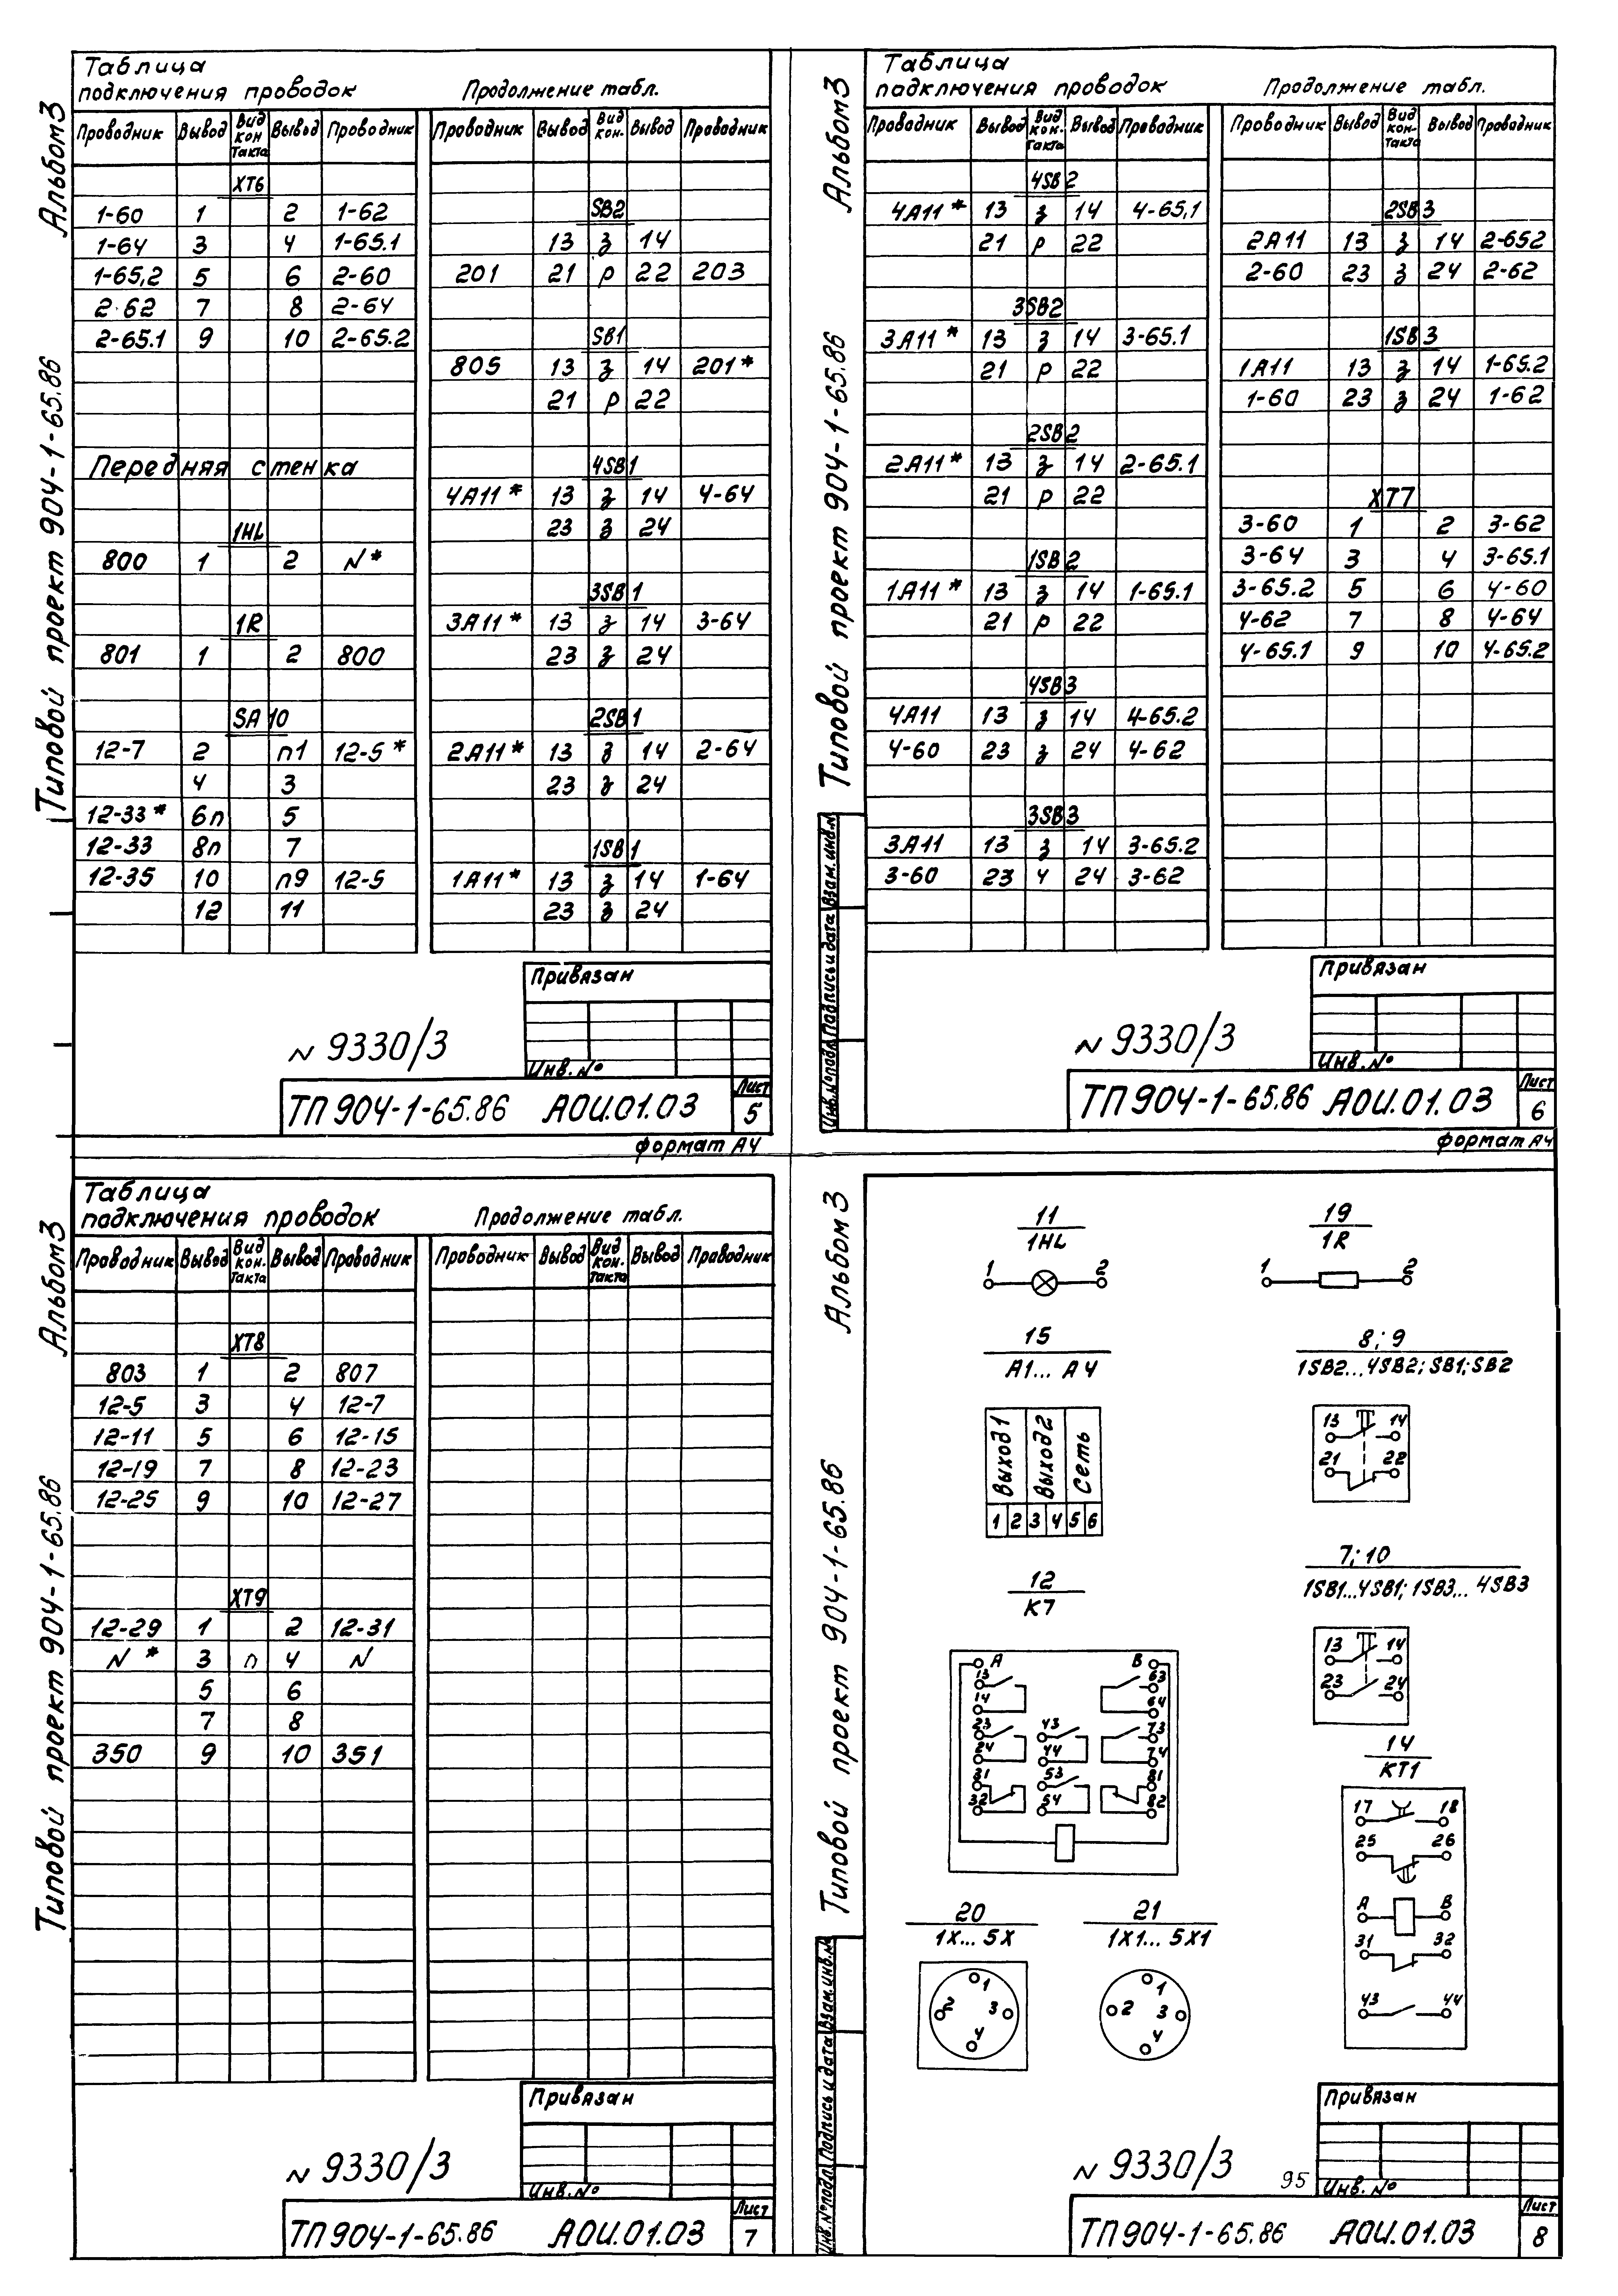 Альбом 3
Типовой проект 904-1-65.86
Таблица
подключения проводок
Продолжение табл.
Проводник Вывод Вид контакта Вывод Проводник
XT6
1-60 1 2 1-62
1-64 3 4 1-65.1
1-65,2 5 6 2-60
2-62 7 8 2-64
2-65.1 9 10 2-65.2
Передняя стенка
1HL
800 1 2 N*
1R
801 1 2 800
SA10
12-7 2 п1 12-5*
4 3
12-33* 6п 5
12-33 8п 7
12-35 10 п9 12-5
12 11
Проводник Вывод Вид кон. Вывод Проводник
SB2
13 з 14
201 21 р 22 203
SB1
805 13 з 14 201*
21 р 22
4SB1
4A11* 13 з 14 4-64
23 з 24
3SB1
3A11* 13 з 14 3-64
23 з 24
2SB1
2A11* 13 з 14 2-64
23 з 24
1SB1
1A11* 13 з 14 1-64
23 з 24
Привязан
Инв. №
N 9330/3
ТП 904-1-65.86 АОИ.01.03
Лист
5
формат А4
Альбом 3
Типовой проект 904-1-65.86
Взам. инв. №
Подпись и дата
Инв. № подл.
Таблица
подключения проводок
Продолжение табл.
Проводник Вывод Вид контакта Вывод Проводник
4SB2
4A11* 13 з 14 4-65,1
21 р 22
3SB2
3A11* 13 з 14 3-65.1
21 р 22
2SB2
2A11* 13 з 14 2-65.1
21 р 22
1SB2
1A11* 13 з 14 1-65.1
21 р 22
4SB3
4A11 13 з 14 4-65.2
4-60 23 з 24 4-62
3SB3
3A11 13 з 14 3-65.2
3-60 23 ч 24 3-62
Проводник Вывод Вид контакта Вывод Проводник
2SB3
2A11 13 з 14 2-652
2-60 23 з 24 2-62
1SB3
1A11 13 з 14 1-65.2
1-60 23 з 24 1-62
XT7
3-60 1 2 3-62
3-64 3 4 3-65.1
3-65.2 5 6 4-60
4-62 7 8 4-64
4-65.1 9 10 4-65.2
Привязан
Инв. №
N 9330/3
ТП 904-1-65.86 АОИ.01.03
Лист
6
формат А4
Альбом 3
Типовой проект 904-1-65.86
Таблица
подключения проводок
Продолжение табл.
Проводник Вывод Вид контакта Вывод Проводник
XT8
803 1 2 807
12-5 3 4 12-7
12-11 5 6 12-15
12-19 7 8 12-23
12-25 9 10 12-27
XT9
12-29 1 2 12-31
N* 3 п 4 N
5 6
7 8
350 9 10 351
Проводник Вывод Вид контакта Вывод Проводник
Привязан
Инв. №
N 9330/3
ТП 904-1-65.86 АОИ.01.03
Лист
7
Альбом 3
Типовой проект 904-1-65.86
Взам. инв. №
Подпись и дата
Инв. № подл.
11
1HL
1 2
19
1R
1 2
15
A1... A4
Выход 1
Выход 2
Сеть
1 2 3 4 5 6
8; 9
1SB2...4SB2; SB1; SB2
13 14
21 22
12
K7
A B
13 63
14 64
23 43 73
24 44 74
31 53 81
32 54 82
7; 10
1SB1...4SB1; 1SB3... 4SB3
13 14
23 24
14
KT1
17 18
25 26
A B
31 32
43 44
20
1X... 5X
1
2 3
4
21
1X1... 5X1
1
2 3
4
Привязан
Инв. №
N 9330/3
95
ТП 904-1-65.86 АОИ.01.03
Лист
8